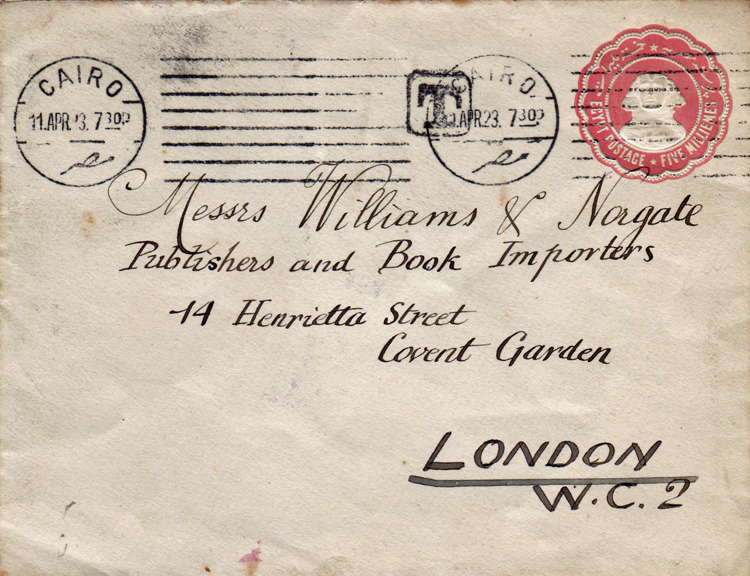 CAIRO
11.APR.23. 7 30P
مصر
T
CAIRO.
11.APR.23. 7 30P
مصر
EGYPT POSTAGE ★ FIVE MILLIEMES
Messrs Williams & Norgate
Publishers and Book Importers
14 Henrietta Street
Covent Garden
LONDON
W.C.2